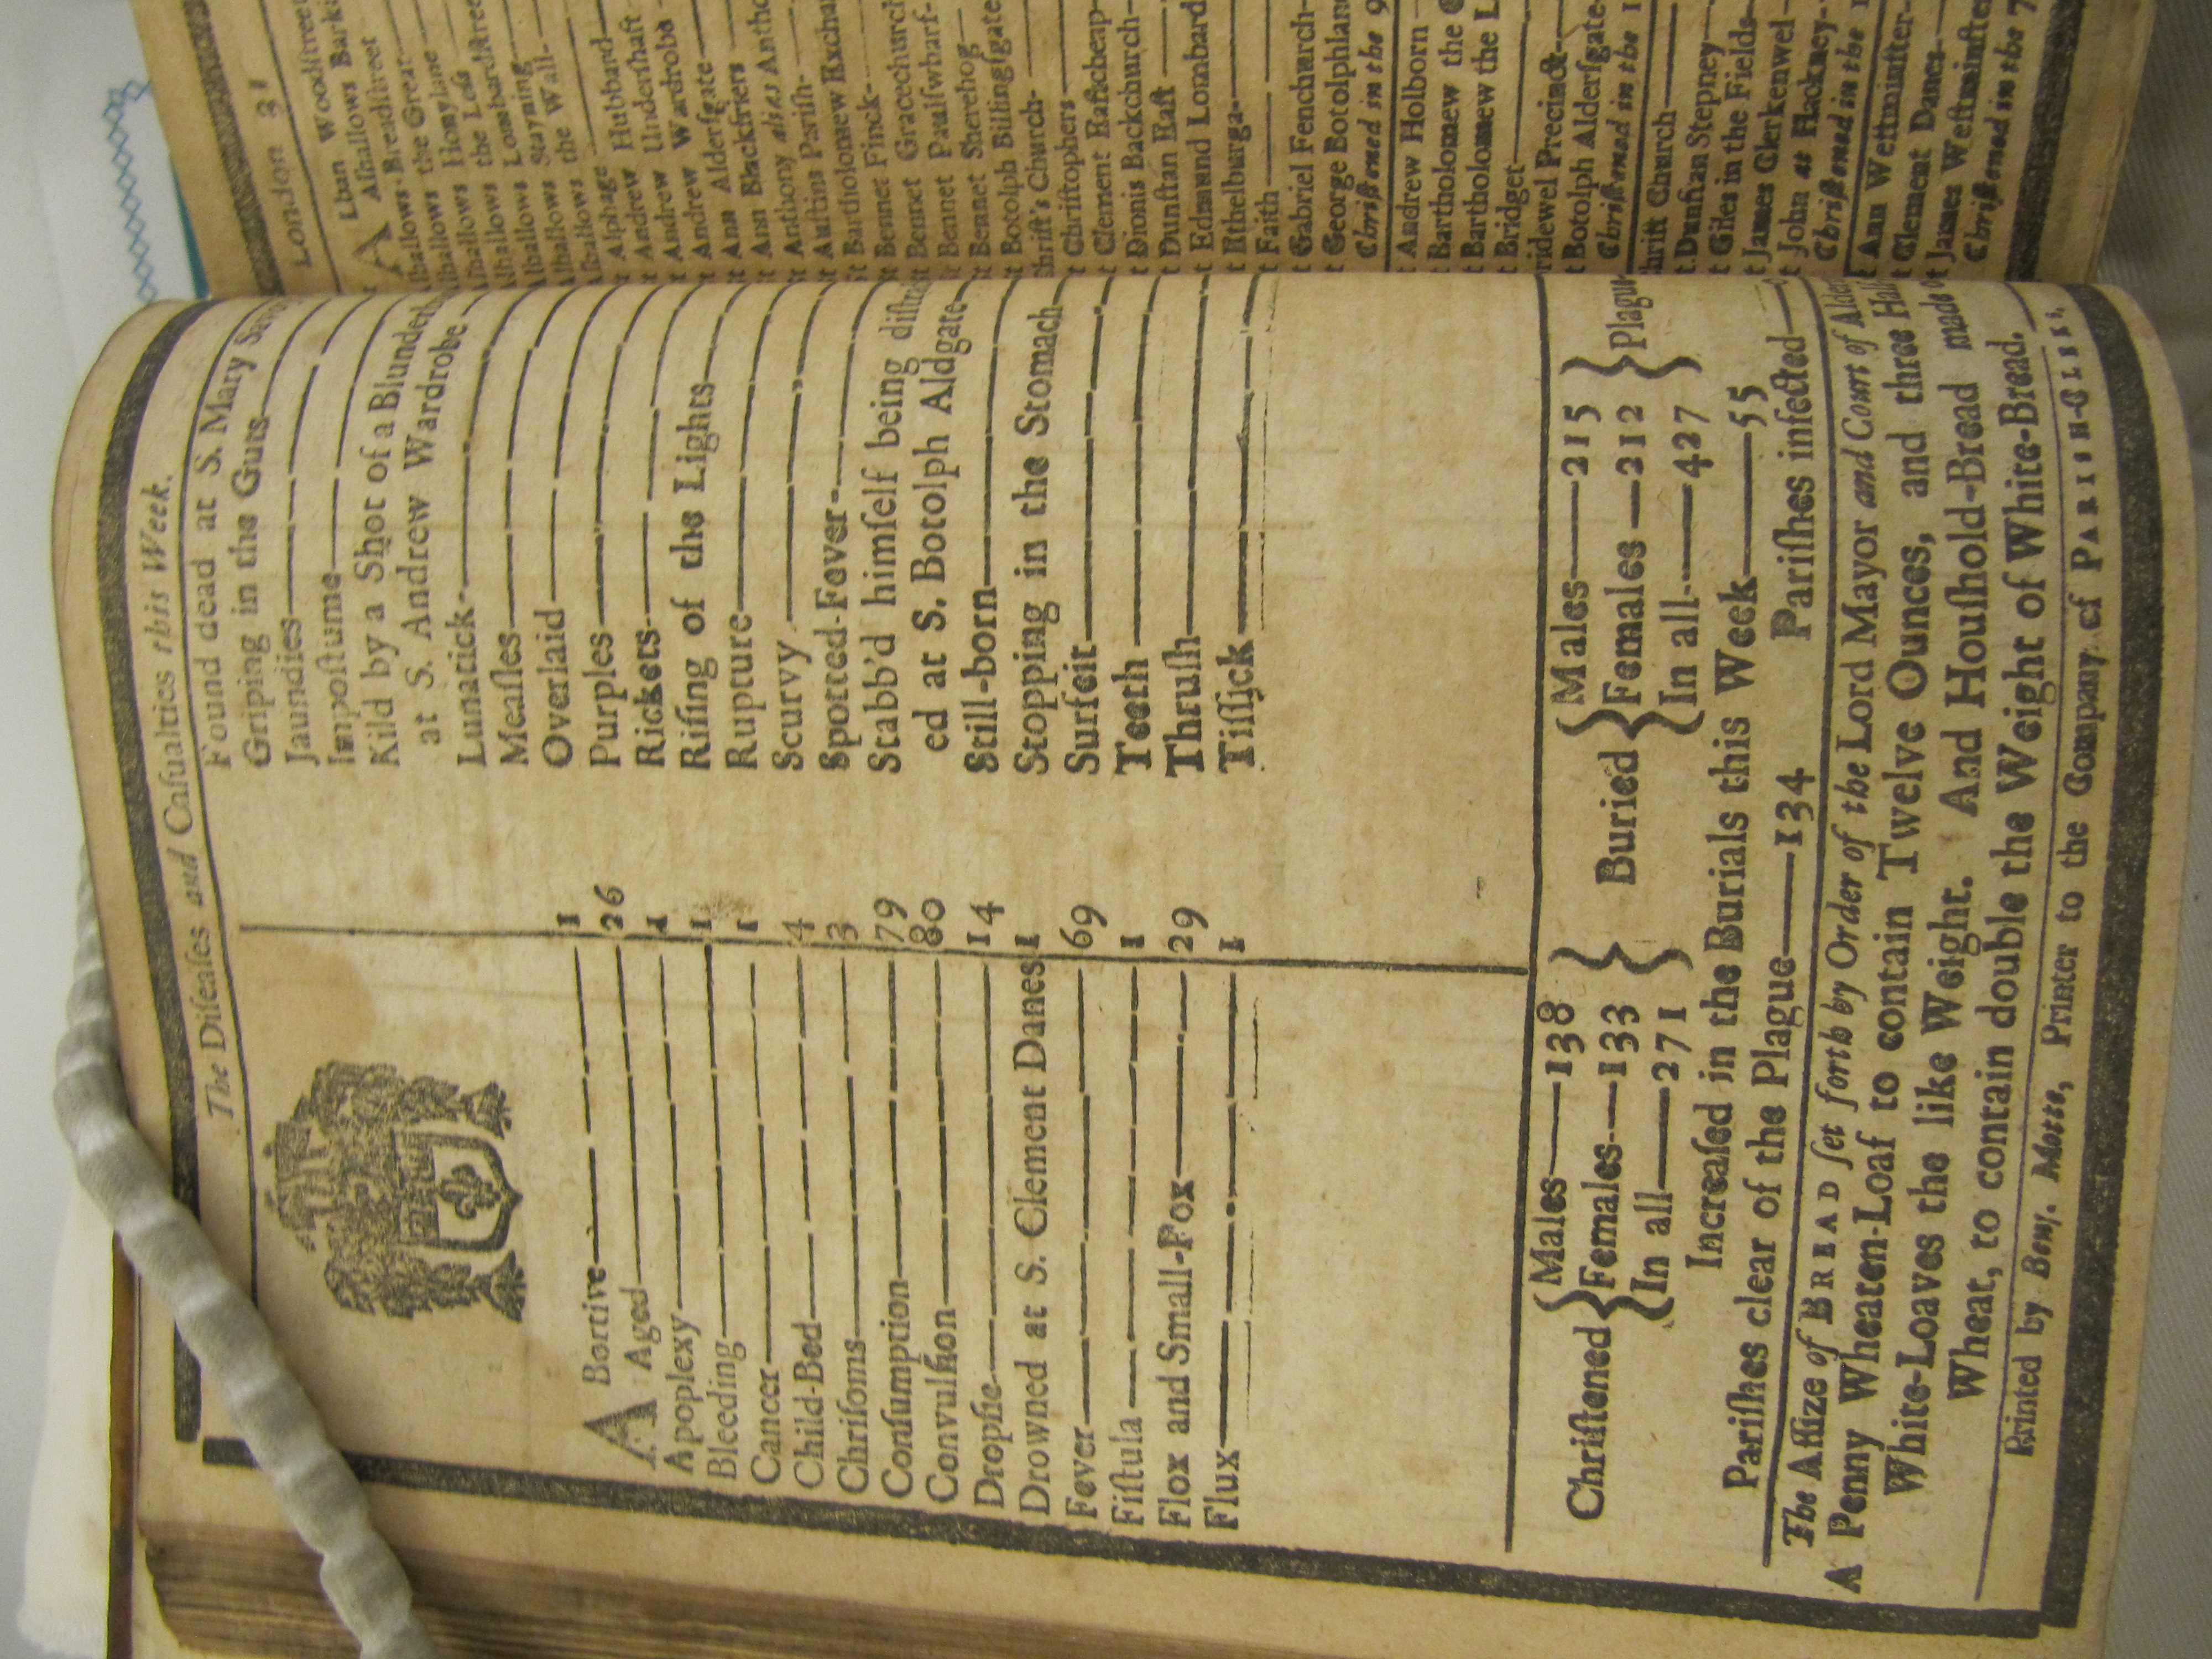 The Diſeaſes and Caſualties this Week.
A Bortive 1
Aged 26
Apoplexy 1
Bleeding 1
Cancer 1
Child-Bed 4
Chriſoms 3
Conſumption 79
Convulſion 80
Dropſie 14
Drowned at S. Clement Danes 1
Fever 69
Fiſtula 1
Flox and Small-Pox 29
Flux 1
Found dead at S. Mary
Griping in the Guts
Jaundies
Impoſtume
Kild by a Shot of a
at S. Andrew Wardrobe
Lunatick
Meaſles
Overlaid
Purples
Rickets
Riſing of the Lights
Rupture
Scurvy
Spotted-Fever
Stabb'd himſelf being
ed at S. Botolph Aldgate
Still-born
Stopping in the Stomach
Surfeit
Teeth
Thruſh
Tiſſick
Chriſtened { Males 138 Females 133 In all 271 } Buried { Males 215 Females 212 In all 427 }
Increaſed in the Burials this Week 55
Pariſhes clear of the Plague 134 Pariſhes infected
The Aſſize of BREAD ſet forth by Order of the Lord Mayor and Court of
A Penny Wheaten-Loaf to contain Twelve Ounces, and three
White-Loaves the like Weight. And Houſhold-Bread made
Wheat, to contain double the Weight of White-Bread.
Printed by Benj. Motte, Printer to the Company of PARISH-CLERKS.
London 31
ALban Woodſtreet
Alhallows
Alhallows Breadſtreet
Alhallows the Great
Alhallows Honylane
Alhallows the Leſs
Alhallows Lombardſtreet
Alhallows Stayning
Alhallows the Wall
Alphage
Andrew Hubbard
Andrew Underſhaft
Andrew Wardrobe
Ann Alderſgate
Ann Blackfriers
Anthony alias
Auſtins Pariſh
Bartholomew
Bennet Finck
Bennet
Bennet Paulſwharf
Bennet Sherehog
Botolph Billingſgate
Chriſt's Church
Chriſtophers
Clement Eaſtcheap
Dionis Backchurch
Dunſtan Eaſt
Edmund Lombard
Ethelburga
Faith
Gabriel Fenchurch
George Botolphlane
Chriſtned in the 9
Andrew Holborn
Bartholomew the
Bartholomew the
Bridget
Bridewel Precinct
Botolph Alderſgate
Chriſtned in the 1
Chriſt Church
Dunſtan Stepney
Giles in the Fields
James Clerkenwel
John at Hackney
Chriſtned in the 1
Ann Weſtminſter
Clement Danes
James
Chriſtned in the 7